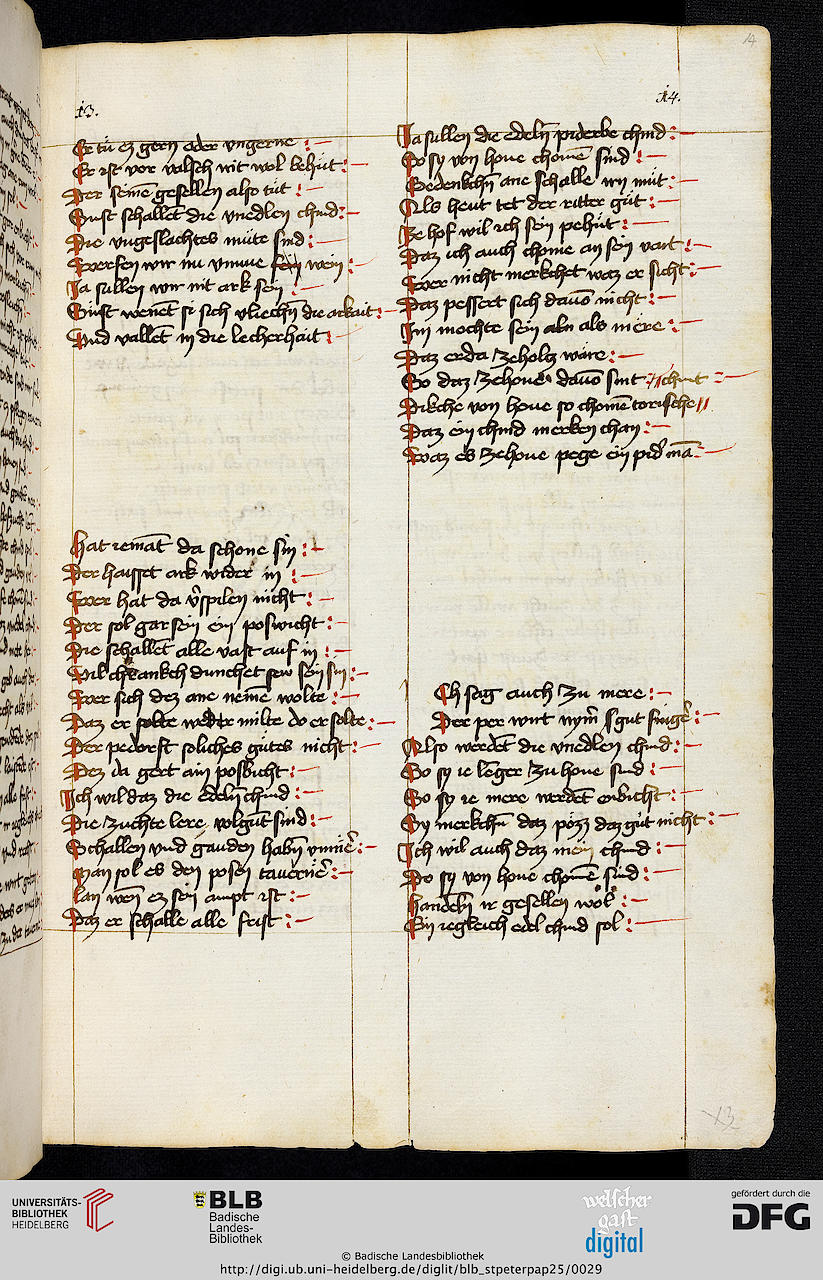 13.
Er tü ez gern oder vngerne
Er ist vor valsch nit wol behüt
Der seine gesellen also tüt
Sust schallet die vnedlen chind
Die vngeslachtes müte sind
Werfen wir nu vmue sein wein
Ja sullen wir nit ark sein
Sust wenet si sich vliechn die arkait
Vnd vallet in die lecherhait
hat iemāt da schone sin
Der haisset ark wider in
Wer hat da v̄spilen nicht
Der sol gar sein ein poswicht
Die schallet alle vast auf in
Vil chrankch dunchet sew sein sin
Wer sich dez ane neme wolte
Daz er solte wider milte do er solte
Der pedorft soliches gütes nicht
Dez da gert ain poswicht
Ich wil daz die edeln chind
Die zuchte lere volgüt sind
Schallen vnd gauden habn vnmēr
Man sol es den posen tauernēr
lan wen ez sein ampt ist
Daz er schalle alle frist
14
14.
Ja sullen die edeln piderbe chind
So sy von houe chomē sind
Gedenkchn ane schalle irn müt
Als heut tet der ritter güt
Ze hof wil ich sein pehüt
Daz ich auch chome an sein vart
Wer nicht merkchet waz er sicht
Daz pessert sich dauō nicht
Im mochte sein aln als mere
Daz er da ze holtz wäre
So daz ze houe dauō sint chint
Dikche von houe so chomē torische
Daz ein chind merken chan
Waz es ze houe pege ein pid mā
Ch sag auch zu mere
Der per wirt nym̄ gut singēr
Also werdet die vnedlen chind
So sy ie lenger zu houe sind
So sy ie mere werdet enbicht
Sy merkchn daz pöz daz güt nicht
Ich wil auch daz mein chind
Do sy von houe chomē sind
handeln ir gesellen wol
Ein iegleich edel chind sol
13
UNIVERSITÄTS-
BIBLIOTHEK
HEIDELBERG
BLB
Badische
Landes-
Bibliothek
welscher
gast
digital
gefördert durch die
DFG
© Badische Landesbibliothek
http://digi.ub.uni-heidelberg.de/diglit/blb_stpeterpap25/0029